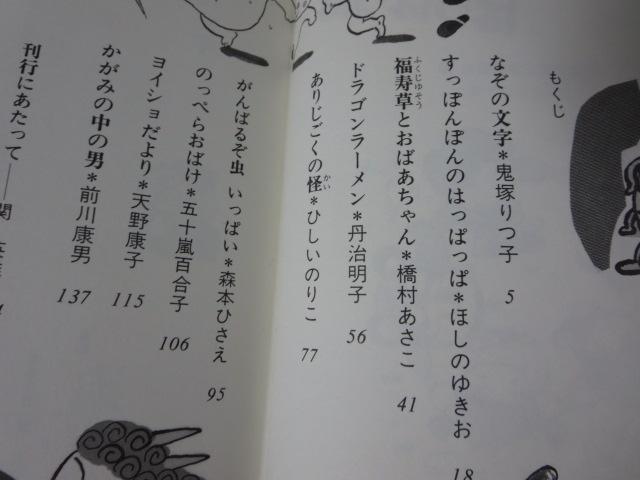 もくじ
なぞの文字*鬼塚りつ子 5
すっぽんぽんのはっぱっぱ*ほしのゆきお 18
福寿草とおばあちゃん*橋村あさこ 41
ふくじゅそう
ドラゴンラーメン*丹治明子 56
ありじごくの怪*ひしいのりこ 77
かい
がんばるぞ虫 いっぱい*森本ひさえ 95
のっぺらおばけ*五十嵐百合子 106
ヨイショだより*天野康子 115
かがみの中の男*前川康男 137
刊行にあたって——関